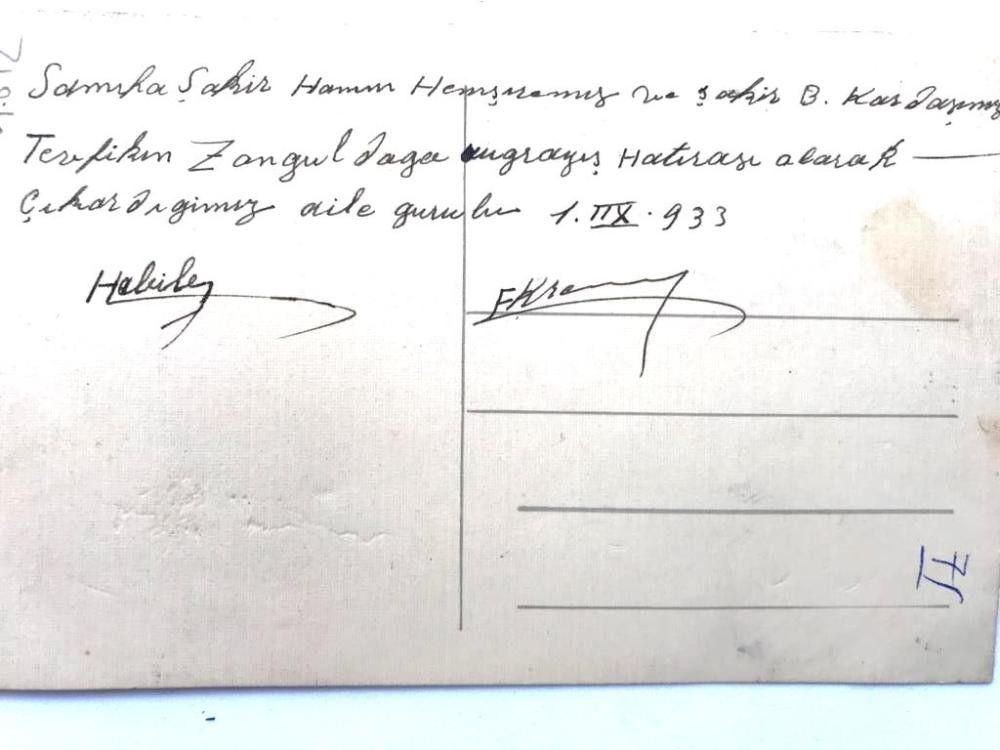 Samiha Şakir Hanım Hemşiremiz ve Şakir B. Kardaşımız
Tesrifikın Zonguldağa augrayış Hatırası olarak
Çıkardığımız aile gurubu 1. IIX. 933
Habibe
EKrem